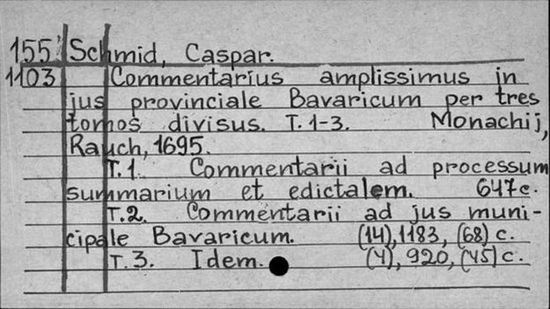 155 Schmid, Caspar.
1103 Commentarius amplissimus in
jus provinciale Bavaricum per tres
tomos divisus. T. 1-3. Monachij,
Rauch, 1695.
T. 1. Commentarii ad processum
summarium et edictalem. 647 c.
T. 2. Commentarii ad jus muni-
cipale Bavaricum. (14), 1183, (68) c.
T. 3. Idem. (4), 920, (45) c.